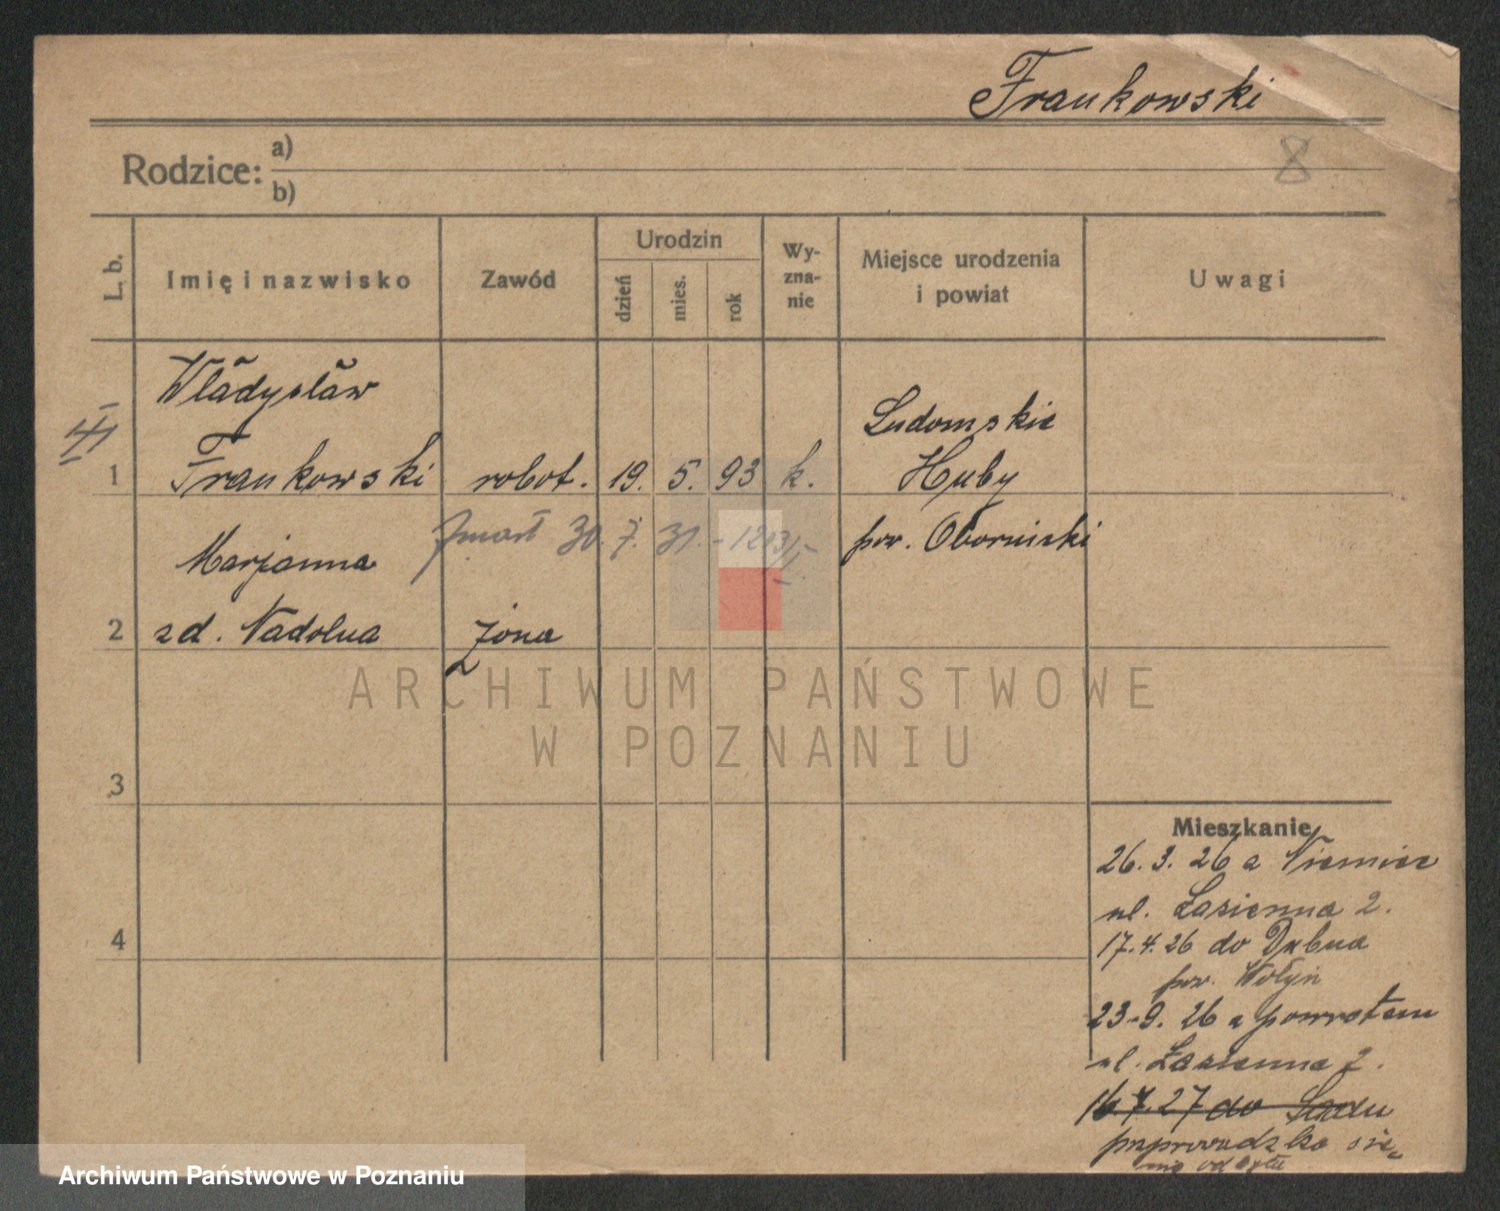 Frankowski
8
Rodzice: a)
b)
L. b.
Imię i nazwisko
Zawód
Urodzin
dzień
mies.
rok
Wy-
zna-
nie
Miejsce urodzenia
i powiat
Uwagi
Władysław
Frankowski
1
robot. 19. 5. 93 k.
Ludomskie
Huby
pow. Obornicki
Zmarł 30. 7. 31.
Marjanna
2 zd. Nadolna
Żona
3
4
ARCHIWUM PAŃSTWOWE
W POZNANIU
Mieszkanie
26. 3. 26 z Niemiec
ul. Łazienna 2.
17. 4. 26 do Dubna
pow. Wołyń
23-9. 26 z powrotem
ul. Łazienna 2.
16 7. 27 do
się
Archiwum Państwowe w Poznaniu